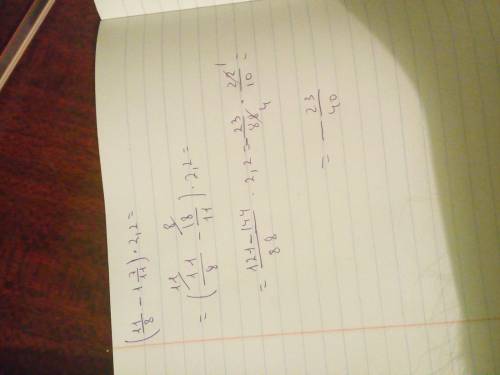 (11/8 - 1 7/11) · 2,2 =
= (11/8 - 18/11) · 2,2 =
= (121-144)/88 · 2,2 = -23/88 · 22/10 =
= -23/40